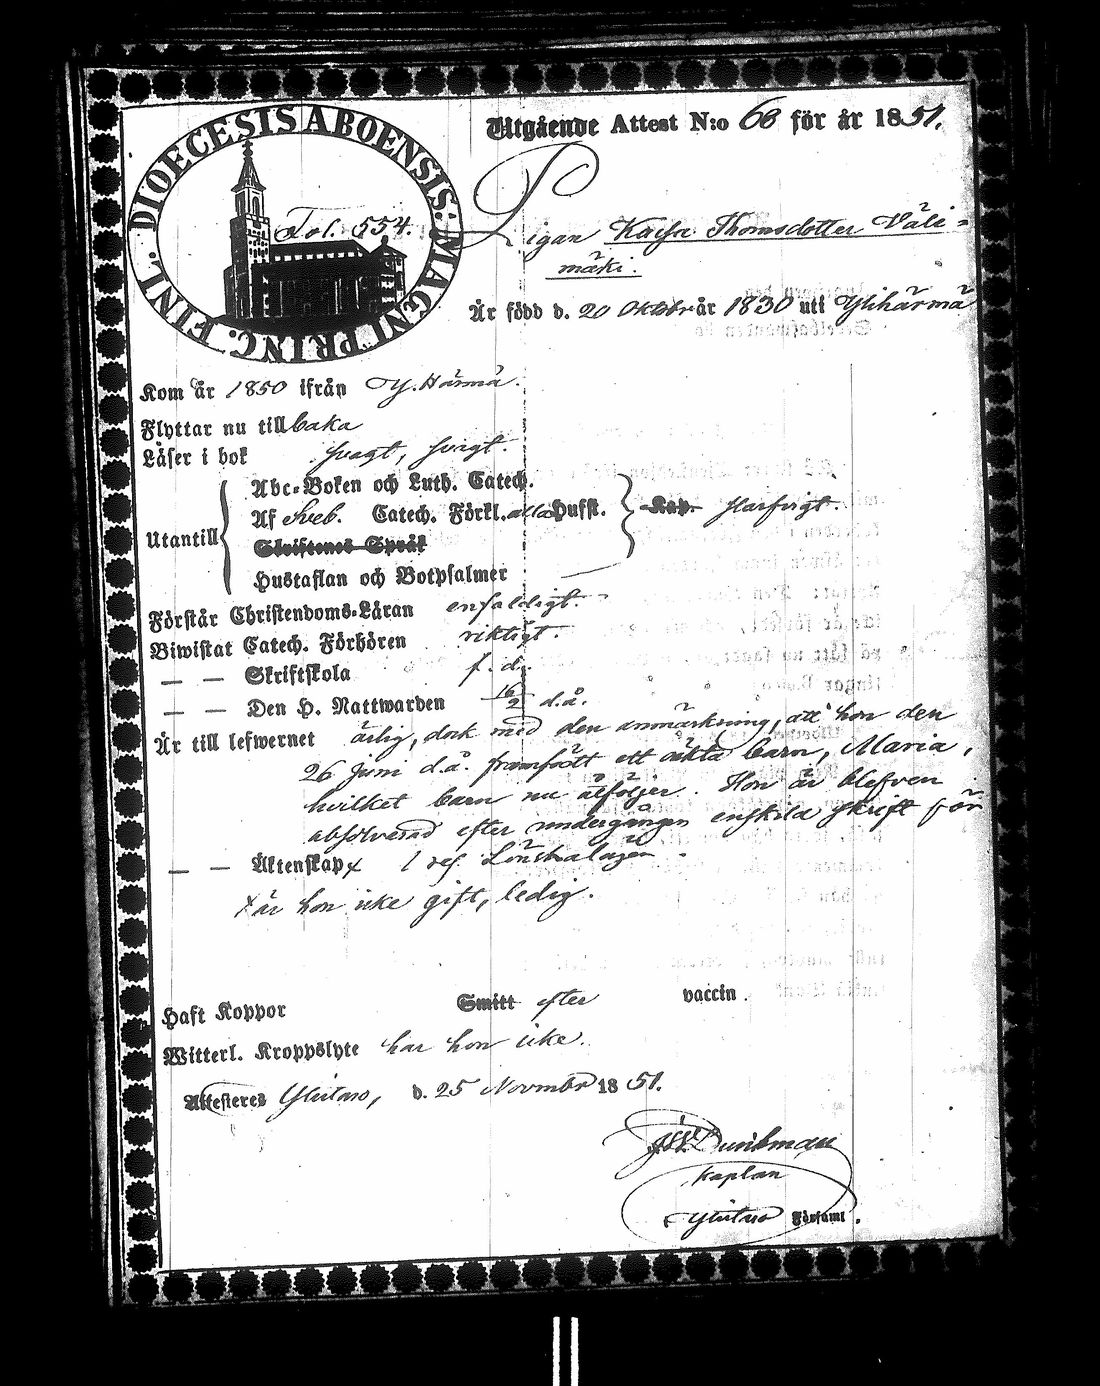 DIOECESIS ABOENSIS: MAGNI PRINC. FINL.
Fol. 554.
Utgående Attest N:o 68 för år 1851.
Pigan Kaisa Thomsdotter Väli=
mäki.
Är född d. 20 Oktobr år 1830 uti Ylihärmä
Kom år 1850 ifrån Y. Härmä.
Flyttar nu tillbaka
Läser i bok svagt, svagt.
Abc-Boken och Luth. Catech.
Utantill Af Sveb. Catech. Förkl. alla Hufst. Kap. försvagt.
Skriftenes Språk
Hustaflan och Botpsalmer
Förstår Christendoms-Läran enfaldigt.
Biwistat Catech. Förhören riktigt.
— — Skriftskola f. d.
— — Den H. Nattwarden 16/2 d.å.
Är till lefwernet ärlig, dock med den anmärkning, att hon den
26 Juni d.å. framfödt ett oäkta barn, Maria,
hvilket barn nu åtföljer. Hon är blefven
absolverad efter undergången enskild skrift för
— — Äktenskap x 1 res. Lönskaläge
x är hon icke gift, ledig.
Haft Koppor Smitt efter vaccin.
Witterl. Kroppslyte har hon icke.
Attesteres Ylistaro, d. 25 Novembr 1851.
Kaplan
Ylistaro Församl.